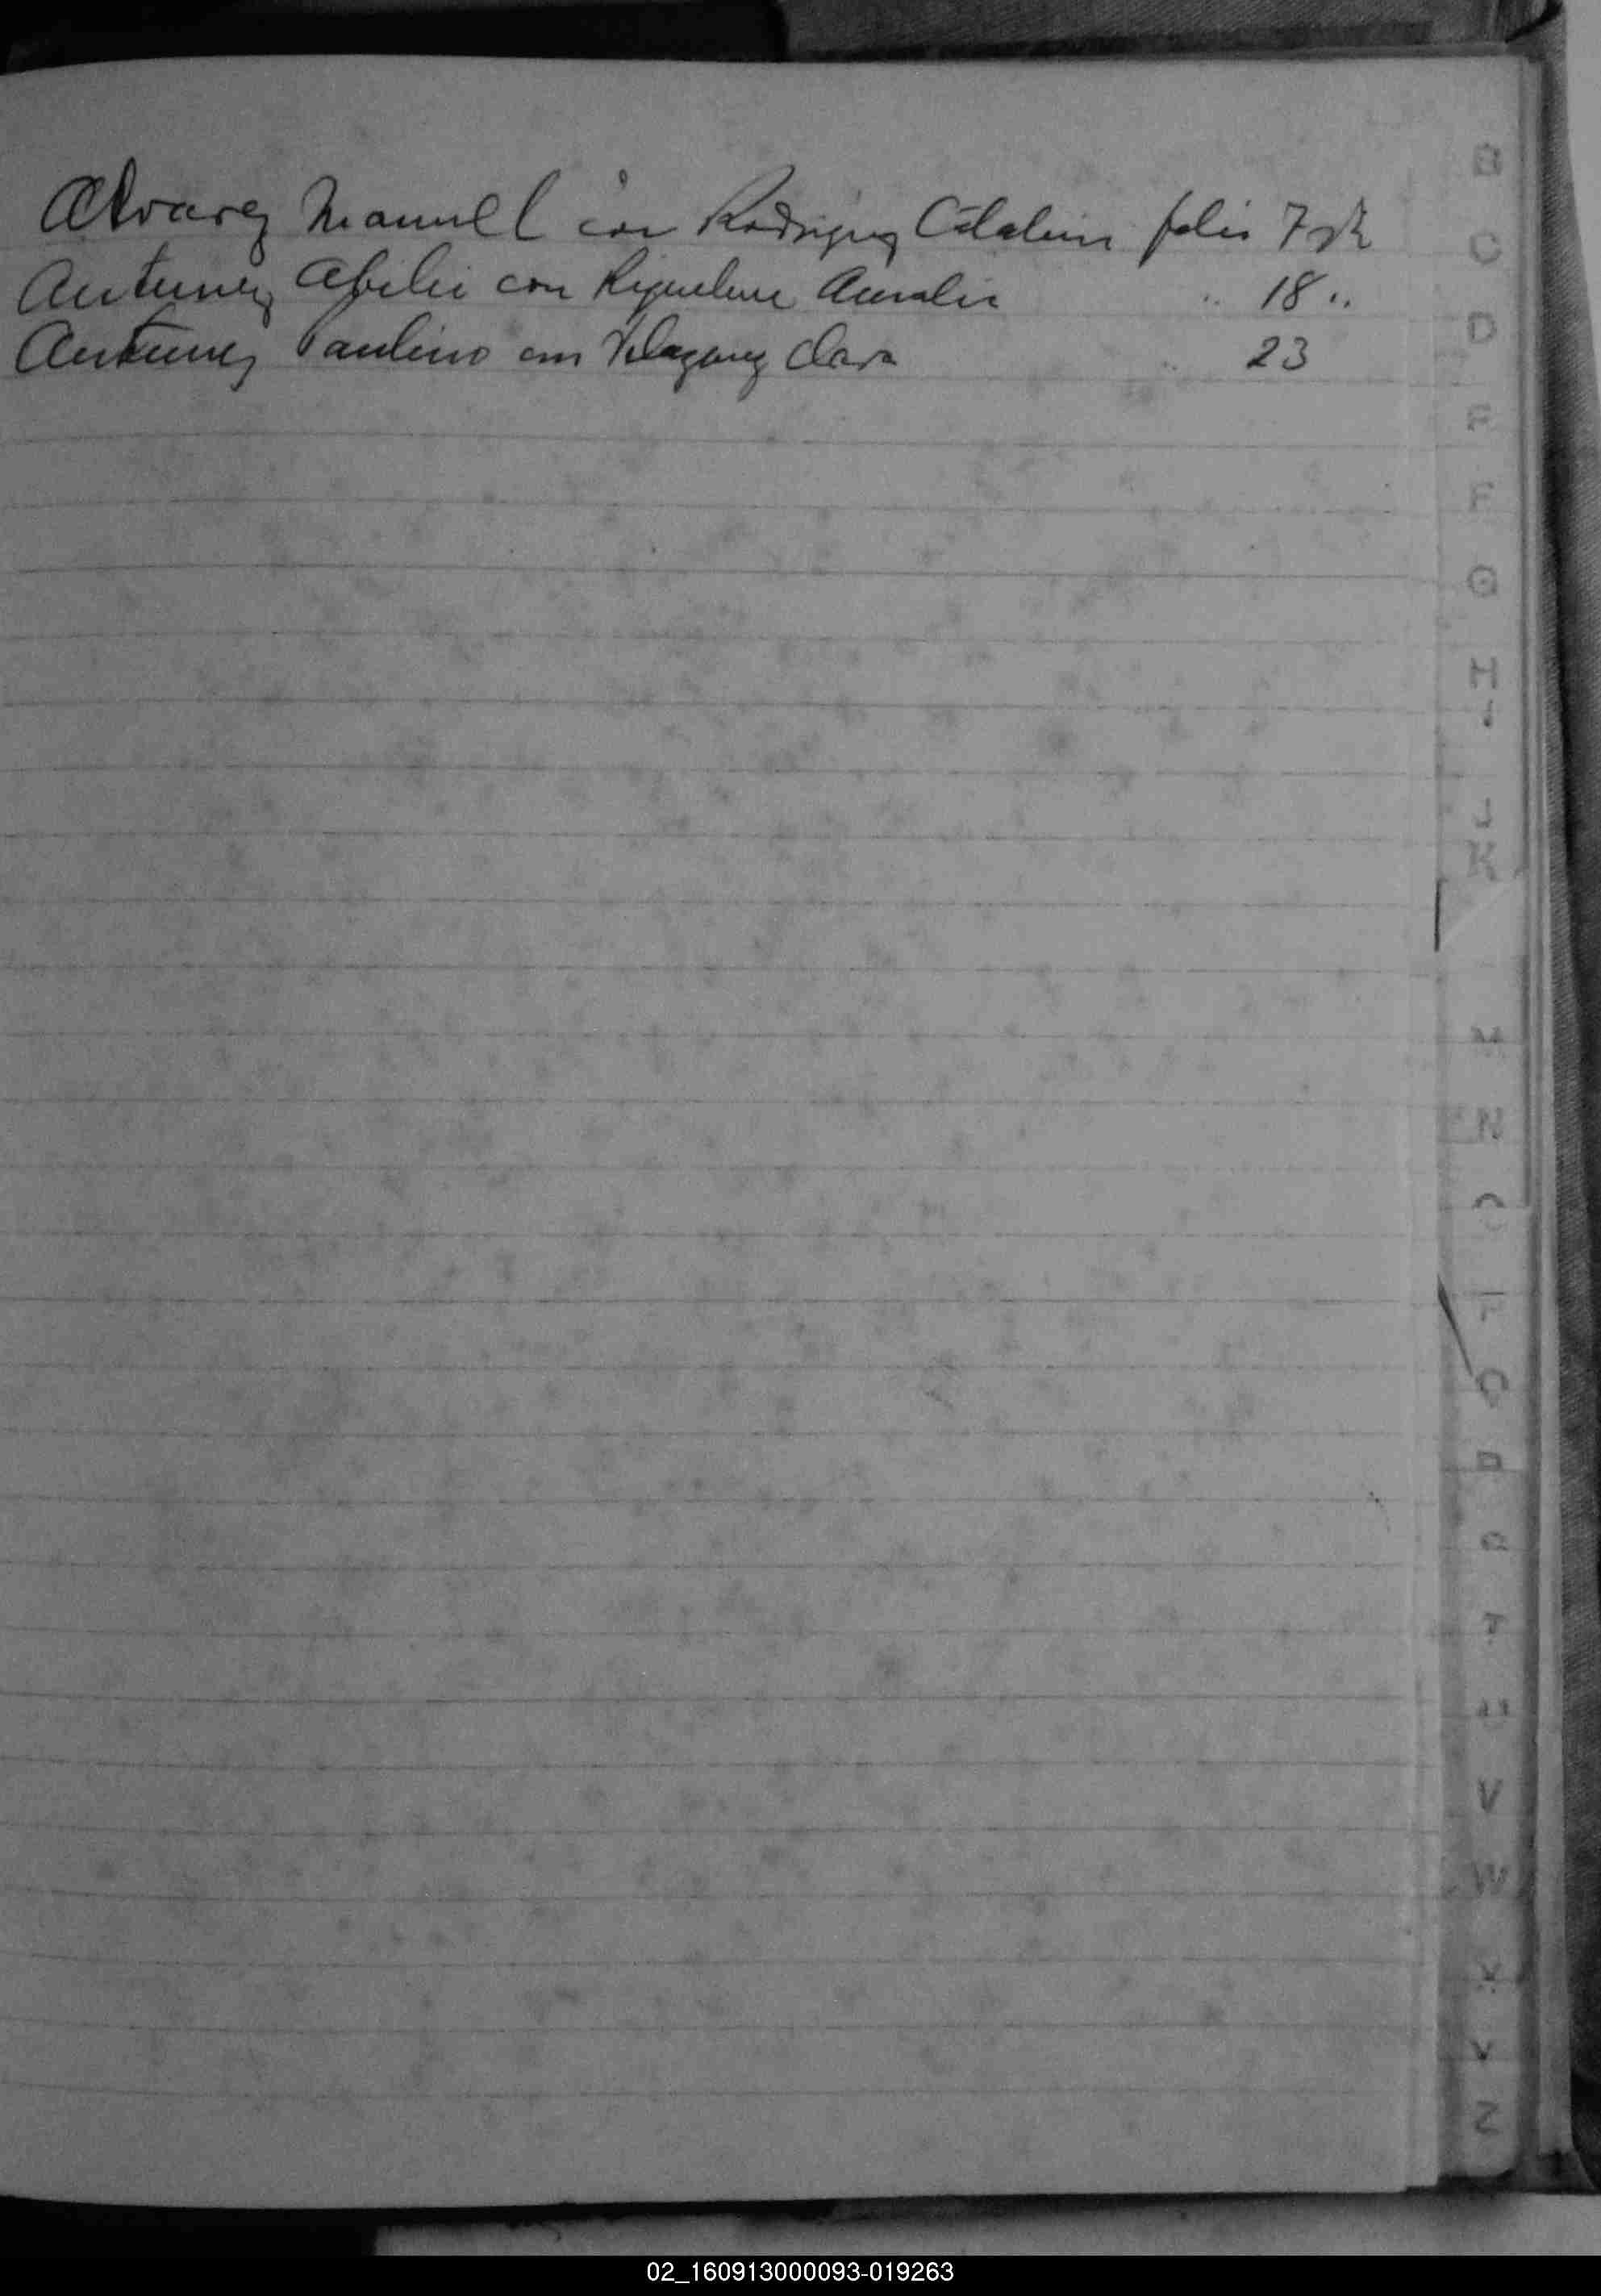 Alvarez Manuel con Rodriguez Catalina folio 7
Antunez Abilio con Riquelme Amalia " 18 "
Antunez Paulino con Clara " 23
B
C
D
E
F
G
H
I
J
K
M
N
O
P
Q
R
S
T
U
V
W
X
Y
Z
02_160913000093-019263